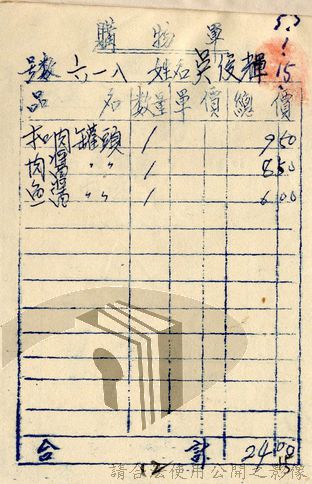 53.1.15
購物單
號數 六一八 姓名 吳俊輝
品名 數量 單價 總價
扣肉罐頭 1 9 50
肉醬 〃〃 1 8 50
魚醬 〃〃 1 6 00
合計 24.00
12
請合法使用公開之影像